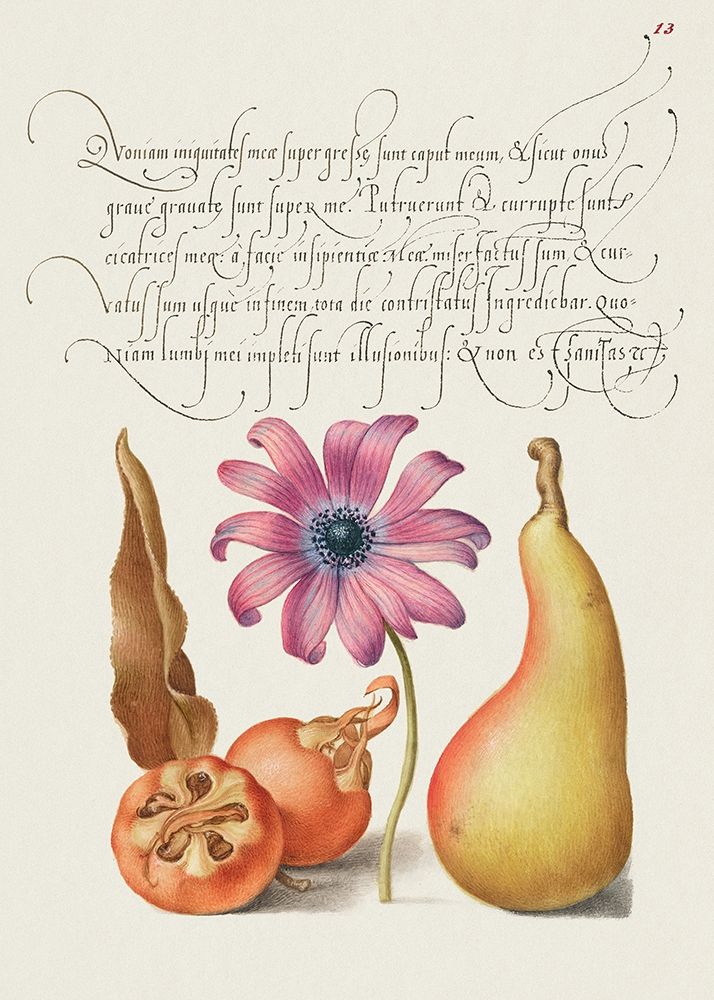 13
Quoniam iniquitates meæ supergressę sunt caput meum, & sicut onus
graue grauatę sunt super me. Putruerunt & currupte sunt
cicatrices meę: à facie insipientiæ Meæ. miser factus sum, & cur-
vatus sum usquè in finem, tota die contristatus Ingrediebar. Quo-
Niam lumbi mei impleti sunt illusionibus: & non est sanitas &c